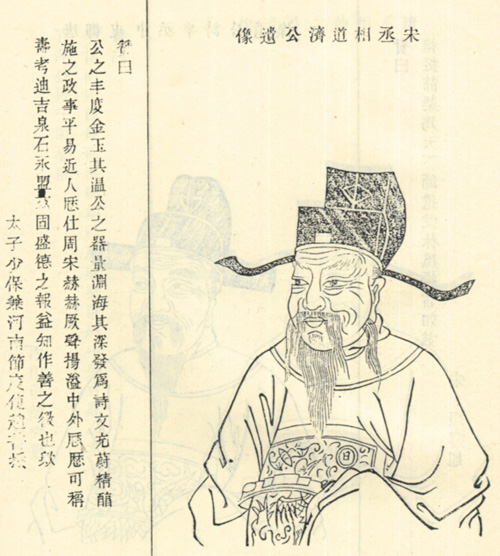 宋丞相道濟公遺像
贊曰
公之丰度金玉其温公之器量淵海其深發爲詩文充蔚精醇
施之政事平易近人歷仕周宋赫赫厥聲揚溢中外歷歷可稱
壽考迪吉泉石永盟固盛德之報益知作善之徵也歟
太子少保兼河南節度使趙普